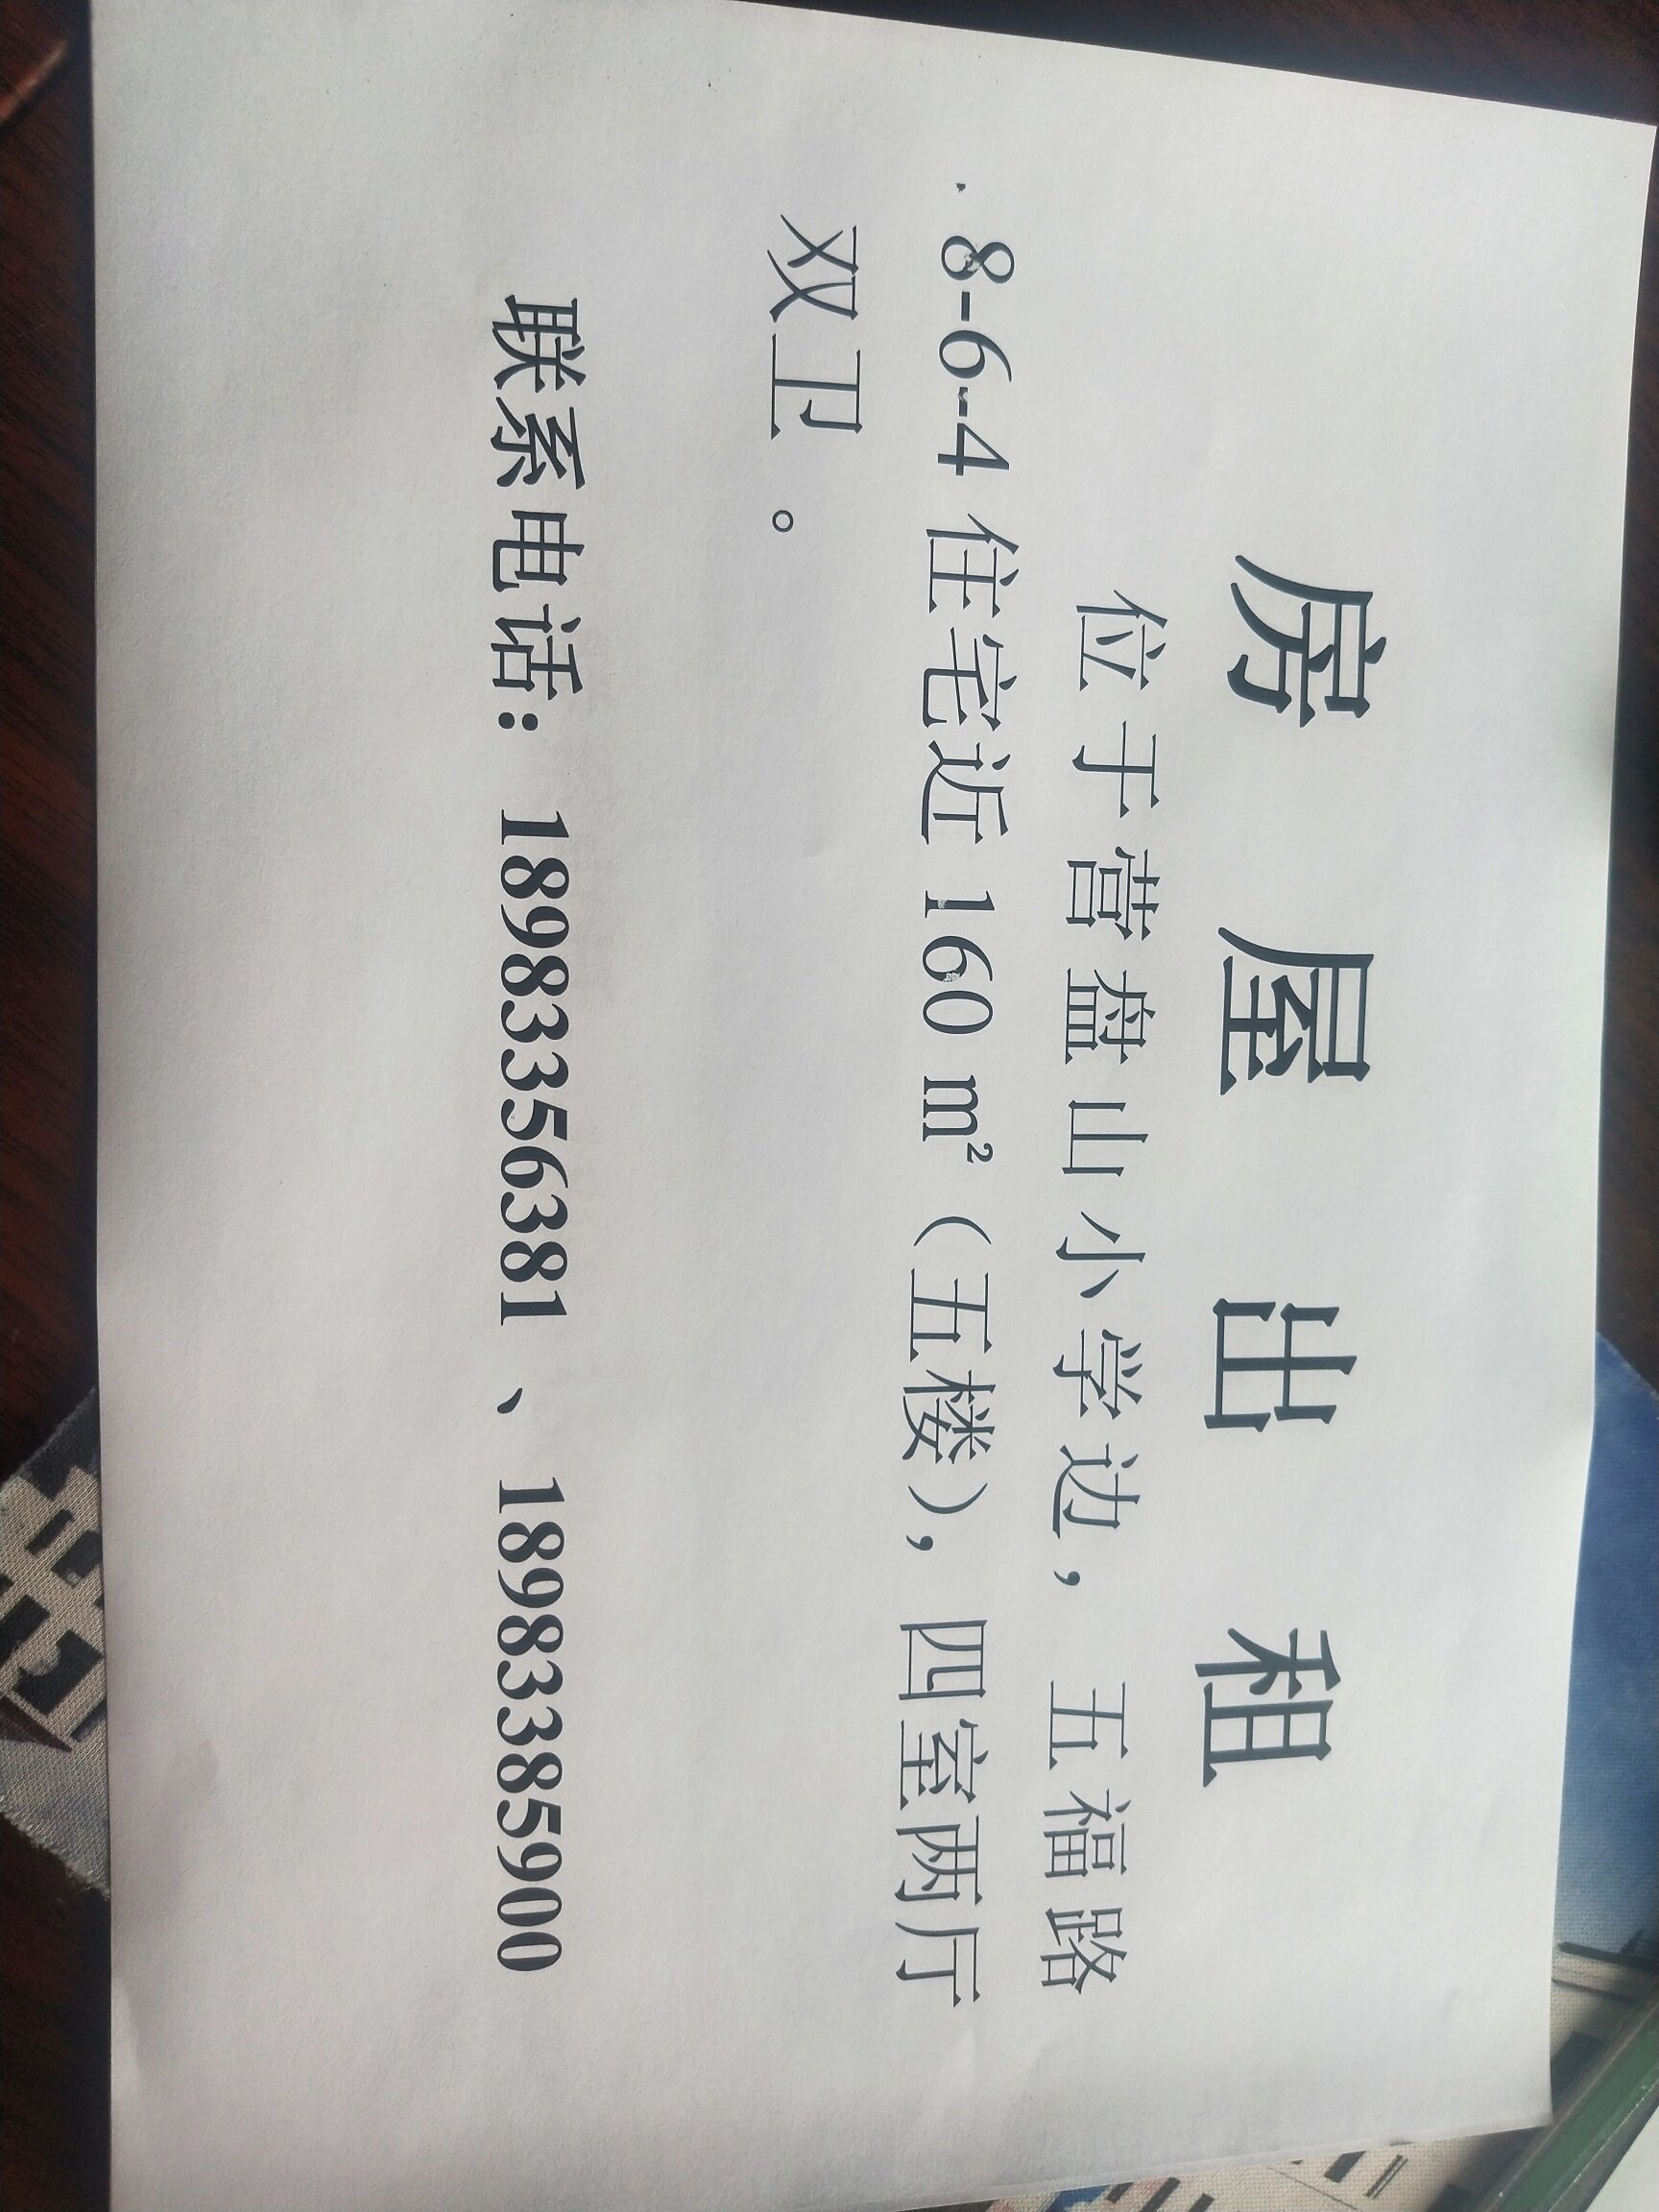 房屋出租
位于营盘山小学边，五福路
8-6-4 住宅近 160 m²（五楼），四室两厅
双卫。
联系电话：18983356381、18983385900